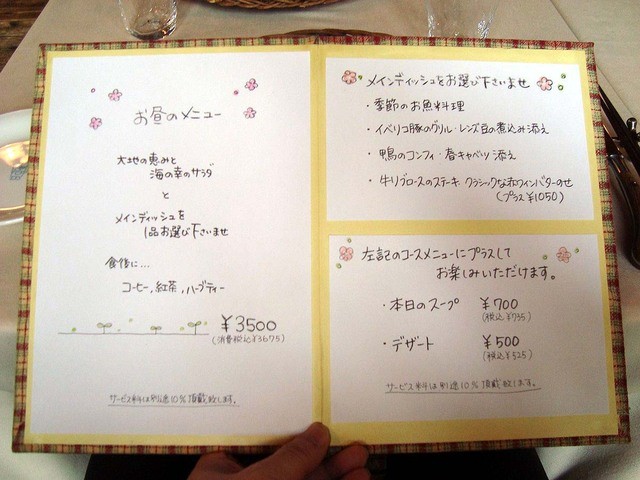 お昼のメニュー
大地の恵みと
海の幸のサラダ
と
メインディッシュを
1品お選び下さいませ
食後に…
コーヒー,紅茶,ハーブティー
¥3500
(消費税込¥3675)
サービス料は別途10%頂戴致します。
メインディッシュをお選び下さいませ
・季節のお魚料理
・イベリコ豚のグリル・レンズ豆の煮込み添え
・鴨のコンフィ・春キャベツ添え
・牛リブロースのステーキ クラシックな赤ワインバターのせ
(プラス¥1050)
左記のコースメニューにプラスして
お楽しみいただけます。
・本日のスープ ¥700
(税込¥735)
・デザート ¥500
(税込¥525)
サービス料は別途10%頂戴致します。